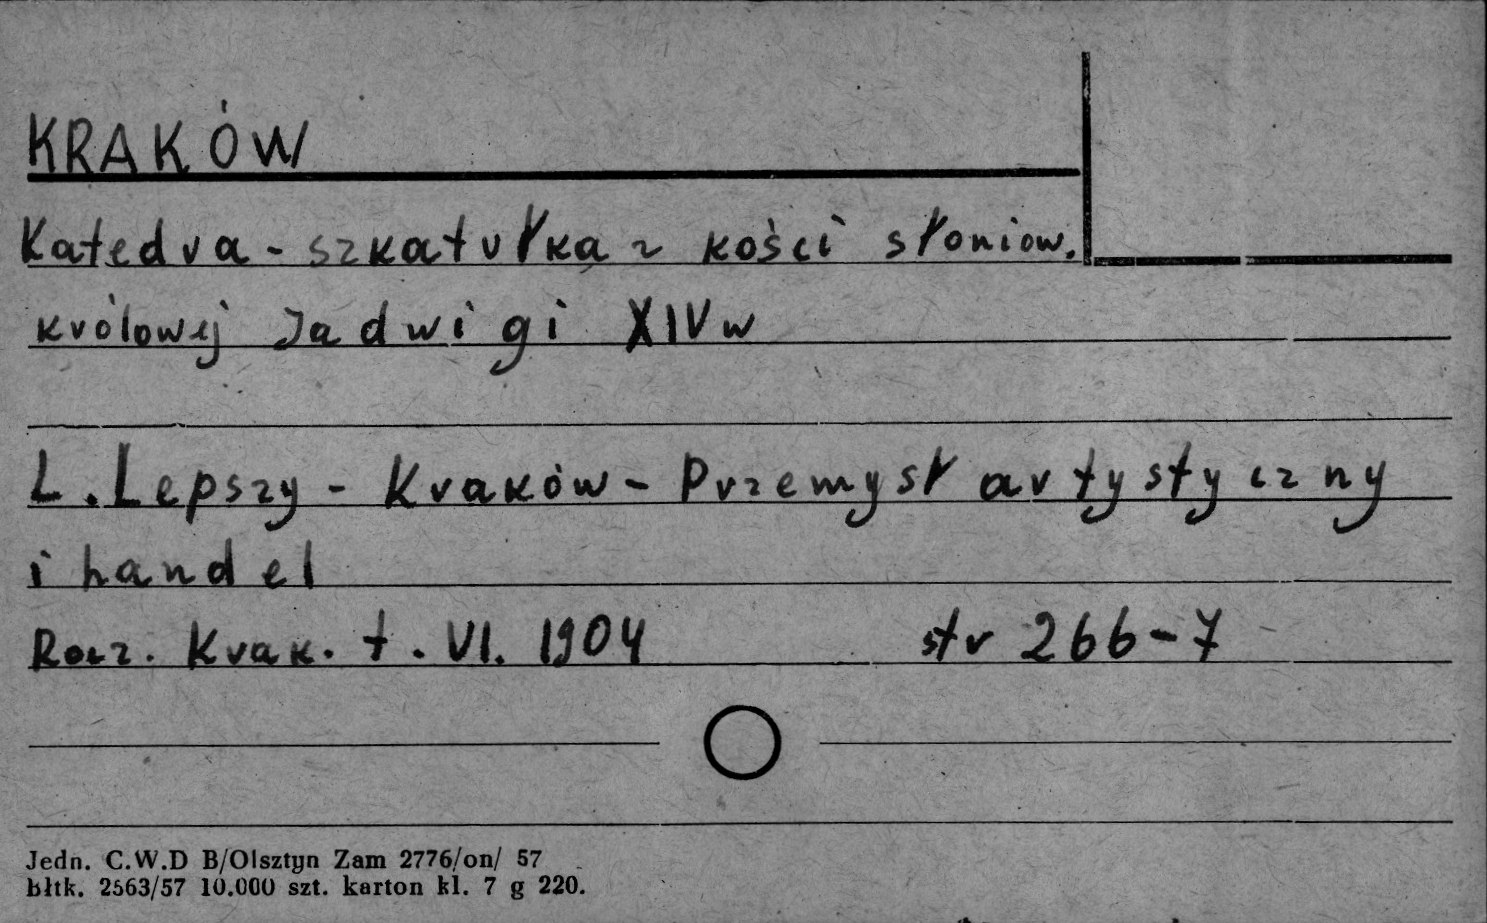 KRAKÓW
Katedra - szkatułka z kości słoniow.
królowej Jadwigi XIV w
L. Lepszy - Kraków - Przemysł artystyczny
i handel
Rocz. Krak. t. VI. 1904 str 266-7
Jedn. C.W.D B/Olsztyn Zam 2776/on/ 57
błtk. 2563/57 10.000 szt. karton kl. 7 g 220.